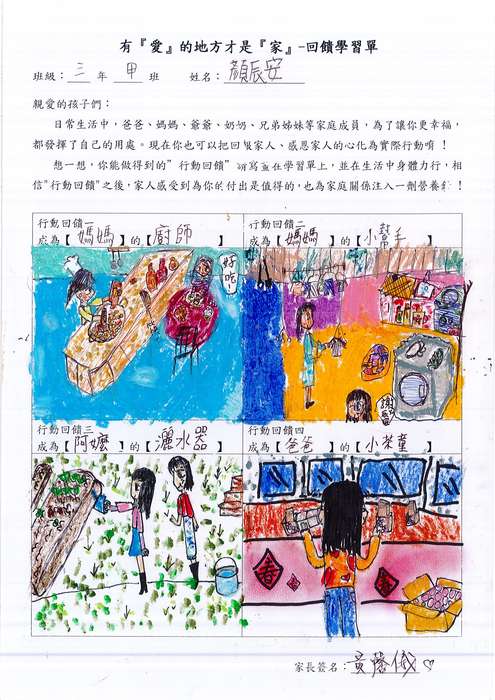 有『愛』的地方才是『家』-回饋學習單
班級：三 年 甲 班 姓名：顏辰安
親愛的孩子們：
日常生活中，爸爸、媽媽、爺爺、奶奶、兄弟姊妹等家庭成員，為了讓你更幸福，
都發揮了自己的用處。現在你也可以把回饋家人、感恩家人的心化為實際行動唷！
想一想，你能做得到的"行動回饋"請寫並在學習單上，並在生活中身體力行，相
信"行動回饋"之後，家人感受到為你的付出是值得的，也為家庭關係注入一劑營養針！
行動回饋一
成為【媽媽】的【廚師】
行動回饋二
成為【媽媽】的【小幫手】
好吃
謝謝
行動回饋三
成為【阿嬤】的【灑水器】
行動回饋四
成為【爸爸】的【小茶童】
春
春
家長簽名：黃馨儀